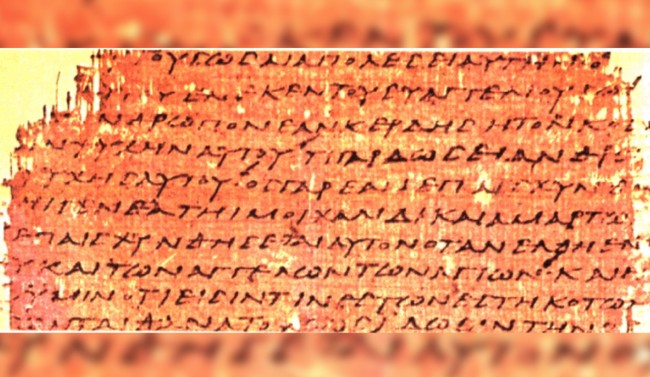 ϹΩϹΑΙ ΑΠΟΛΕϹΕΙ ΑΥΤΗΝ
ΕΝΕΚΕΝ ΤΟΥ ΕΥΑΓΓΕΛΙΟΥ
ΑΝΘΡΩΠΟΝ ΕΑΝ ΚΕΡΔΗϹΗ ΤΟΝ ΚΟϹ
ΨΥΧΗΝ ΑΥΤΟΥ ΤΙ ΓΑΡ ΔΩϹΕΙ ΑΝΘΡ
ΨΥΧΗϹ ΑΥΤΟΥ ΟϹ ΓΑΡ ΕΑΝ ΕΠΑΙϹΧΥΝ
ΓΕΝΕΑ ΤΗ ΜΟΙΧΑΛΙΔΙ ΚΑΙ ΑΜΑΡΤΩ
ΕΠΑΙϹΧΥΝΘΗϹΕΤΑΙ ΑΥΤΟΝ ΟΤΑΝ ΕΛΘΗ ΕΝ
ΚΑΙ ΤΩΝ ΑΓΓΕΛΩΝ ΤΩΝ ΑΓΙΩΝ ΚΑΙ
ΥΜΙΝ ΟΤΙ ΕΙϹΙΝ ΤΙΝΕϹ ΤΩΝ ΕϹΤΗΚΟΤΩΝ
ΘΑΝΑΤΟΥ ΙΔΩϹΙΝ ΤΗΝ